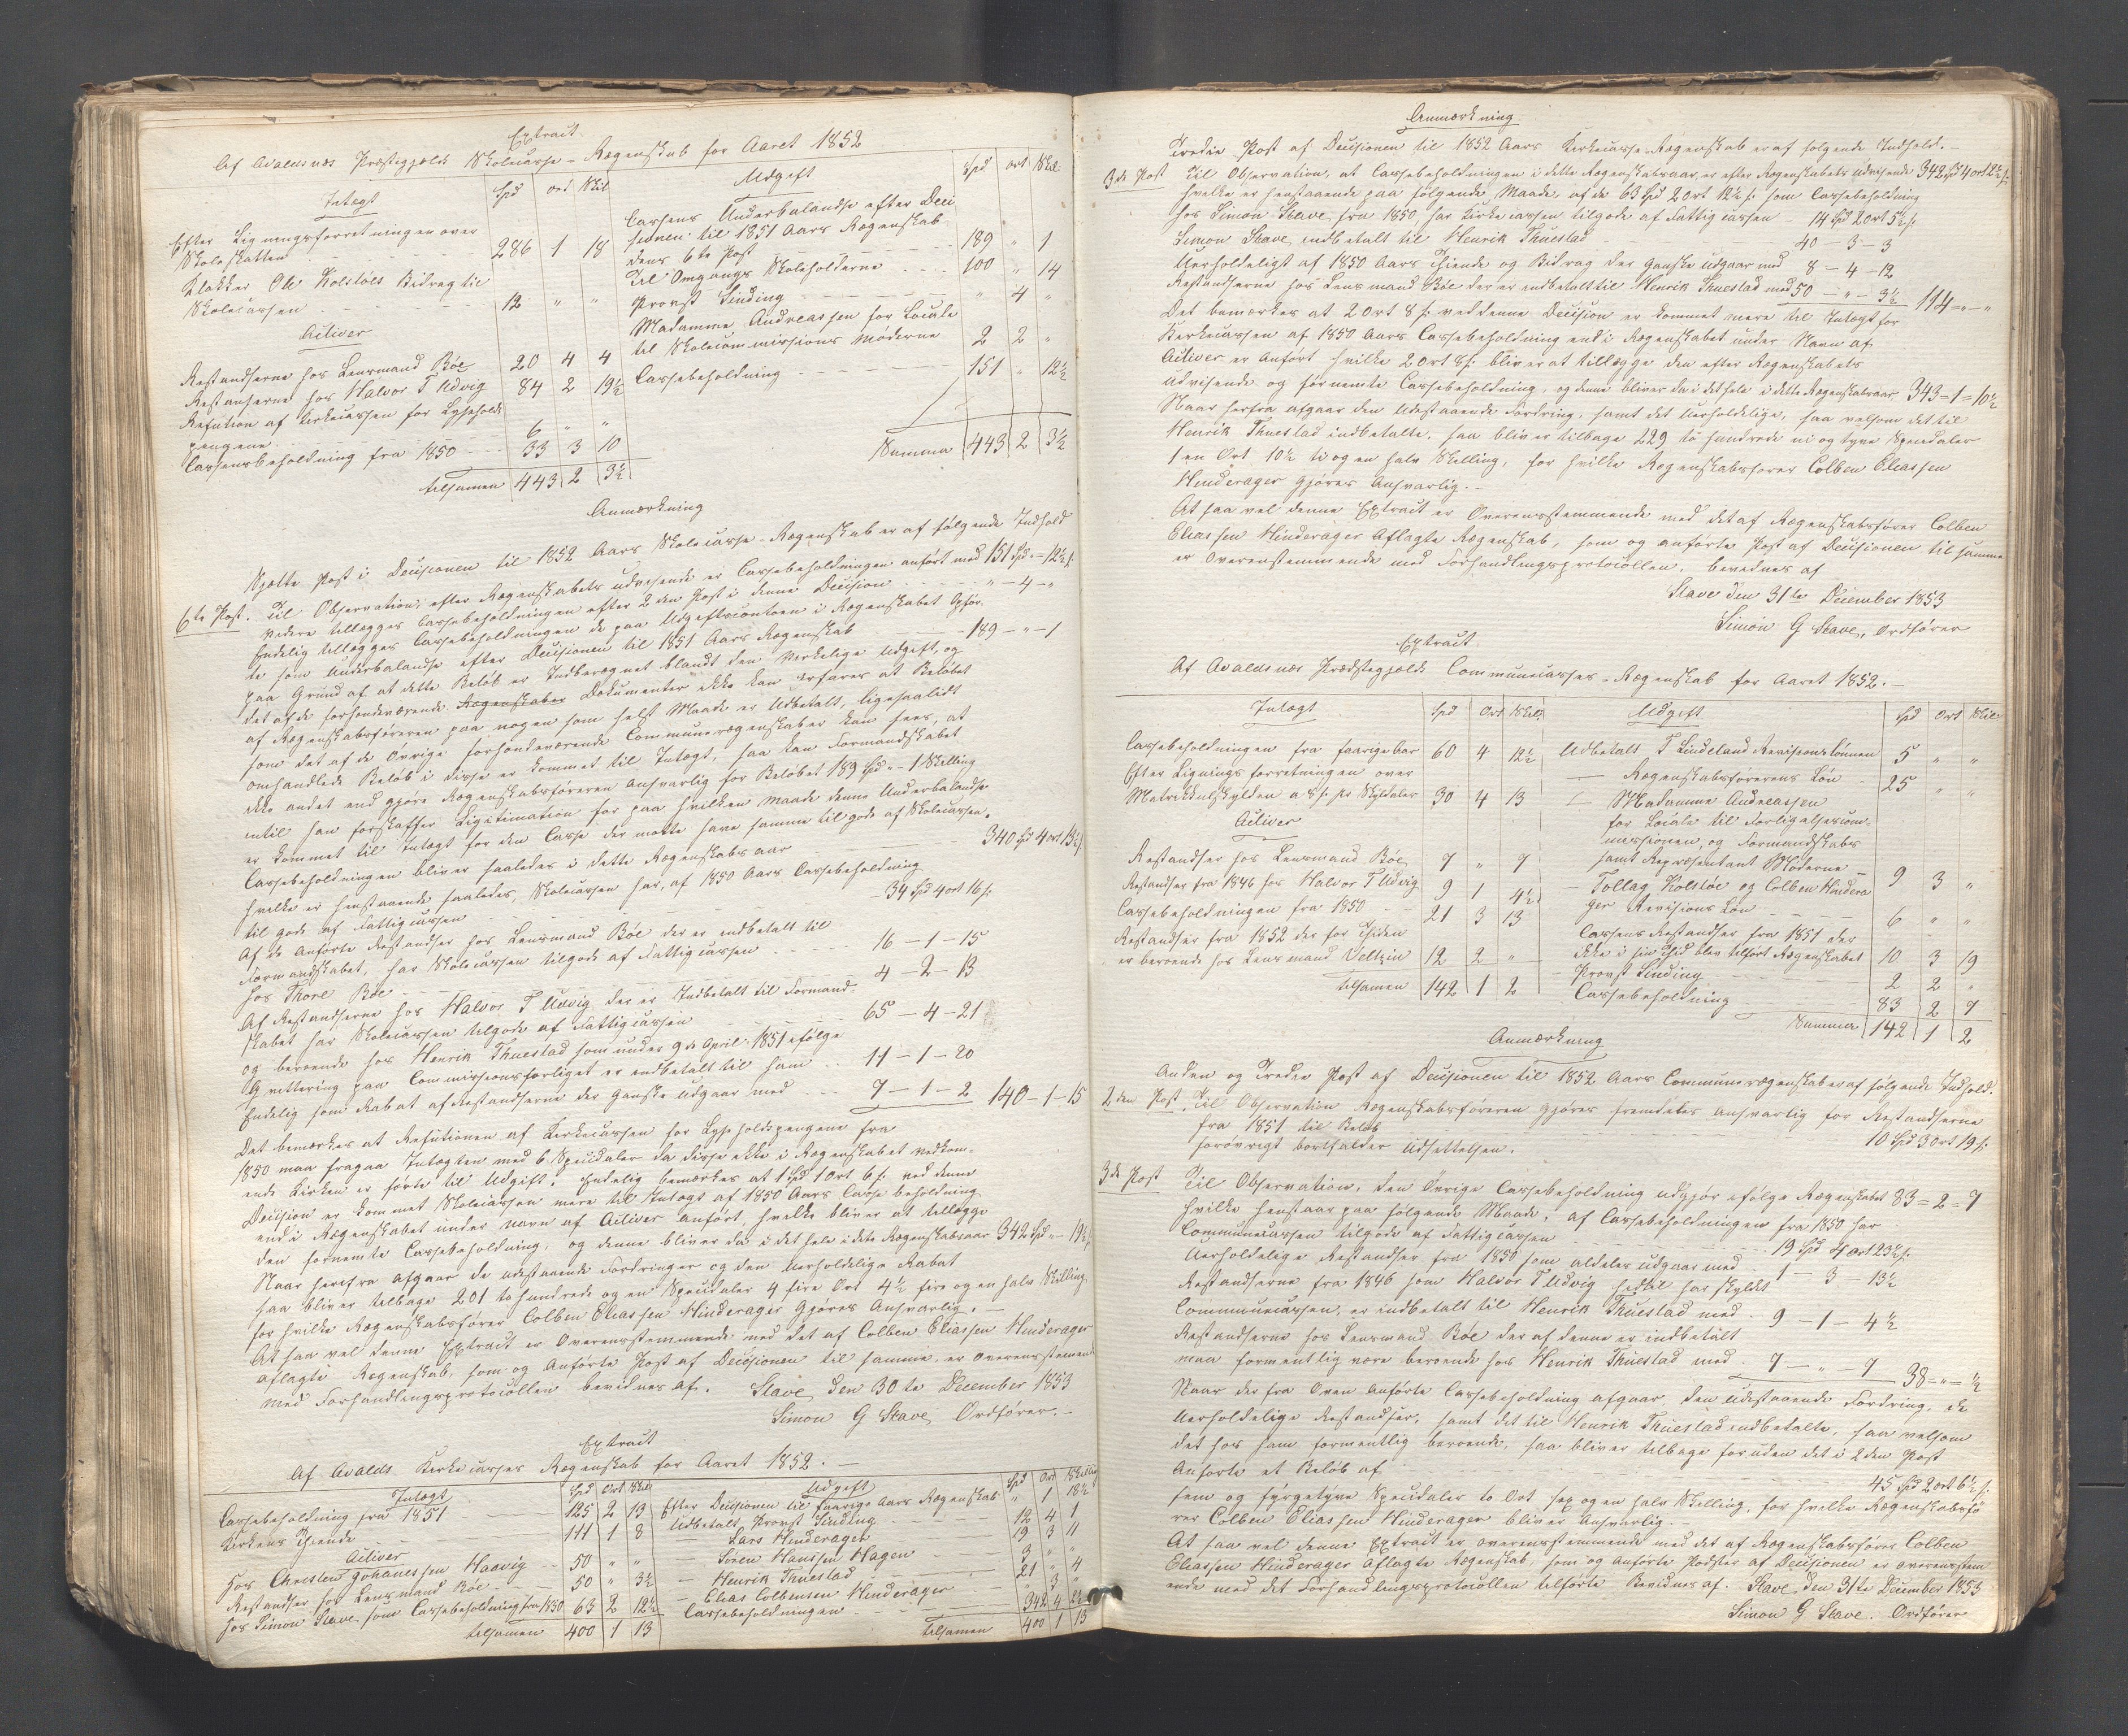 Extract
Af Avaldsnæs Præstegjelds Skolecasse-Regenskab for Aaret 1852
Indtægt Spd ort Skil
Efter Ligningsforretningen over
Skoleskatten 286 1 18
Klokker Ole Kolstøes Bidrag til
Skolecassen 12 " "
Activer
Restandserne hos Lensmand Bøe 20 4 4
Restanserne hos Halvor T Udvig 84 2 19½
Refution af Kirkecassen for Lyseholds
pengene 6 " "
Cassensbeholdning fra 1850 33 3 10
tilsamen 443 2 3½
Udgift Spd ort Skil
Cassens Underbalandse efter Deci
sionen til 1851 Aars Regenskab
dens 6te Post 189 " 1
Til Omgangs Skoleholderne 100 " 14
Provst Sinding " 4 "
Madamme Andreassen for Locale
til Skolecommissions Møderne 2 2 "
Cassebeholdning 151 " 12½
Summa 443 2 3½
Anmærkning
Sjette Post i Decisionen til 1852 Aars Skolecasse-Regenskab er af følgende Indhold
6te Post. Til Observation, efter Regenskabets udvisende er Cassebeholdningen anført med 151 Spd " - 12½ s.
videre tillægges Cassebeholdningen efter 2den Post i denne Decision " - 4 - "
Endelig tillægges Cassebeholdningen de paa Udgiftscontoen i Regenskabet Opfør-
te som Underbalandse efter Decisionen til 1851 Aars Regenskab 189 - " - 1
paa Grund af at dette Beløb er Indberegnet blandt den Verkelige Udgift, og
det af de forhendeværende Regenskaber Dokumenter ikke kan erfares at Beløbet
af Regenskabsføreren paa nogen som helst Maade er Udbetalt, ligesaalidt
som det af de Øvrige forhendeværende Communeregenskaber kan sees, at
omhandlede Beløb i disse er kommet til Indtægt, saa kan Formandskabet
ikke andet end gjøre Regenskabsføreren Ansvarlig for Beløbet 189 Spd " - 1 Skelling
intil han forskaffer Ligitimation for paa hvilken Maade denne Underbalandse
er kommet til Indtægt for den Casse der motte have samme til gode af Skolecassen.
Cassebeholdningen bliver saaledes i dette Regenskabs aar 340 Spd 4 ort 13½ s.
hvilke er henstaaende saaledes, Skolecassen har, af 1850 Aars Cassebeholdning
til gode af Fattigcassen 34 Spd 4 ort 16 s.
Af de Anførte Restandser hos Lensmand Bøe der er indbetalt til
Formandskabet, har Skolecassen tilgode af Fattigcassen 16 - 1 - 15
hos Thore Bøe 4 - 2 - 13
Af Restandserne hos Halvor T Udvig der er Indbetalt til Formand-
skabet har Skolecassen tilgode af Fattigcassen 65 - 4 - 21
og beroende hos Henrik Thuestad som under 9de April 1851 ifølge
Qvittering paa Commissionsforliget er indbetalt til ham 11 - 1 - 20
Endelig som Rabat af Restandserne der ganske udgaar med 7 - 1 - 2 140 - 1 - 15
Det bemærkes at Refutionen af Kirkecassen for Lyseholdspengene fra
1850 maa fragaa Indtægten med 6 Speciedaler da disse ikke i Regenskabet vedkom-
ende Kirken er førte til Udgift. Endelig bemærkes at 1 Spd 1 Ort 6 s. ved denne
Decision er kommet Skolecassen mere til Indtægt af 1850 Aars Casse beholdning
end i Regenskabet under navn af Activer anført, hvilke bliver at tillægge
den fornemte Cassebeholdning, og denne bliver da i det hele i dete Regenskabsaar 342 Spd " - 19½ s.
Naar herefra afgaar de udestaaende Fordringer og den Uerholdelige Rabat
saa bliver tilbage 201 to hundrede og en Speciedaler 4 fire Ort 4½ fire og en halv Skilling
for hvilke Regenskabsfører Colben Eliassen Hinderager Gjøres Ansvarlig. -
At saa vel denne Extract er Overensstemmende med det af Colben Eliassen Hinderager
aflagte Regenskab, som og Anførte Post af Decisionen til samme, er Overensstemmend
med Forhandlingsprotocollen bevidnes af. Stave den 30te December 1853
Simon G Stave, Ordfører. -
Extract
Af Avalds Kirkecasses Regenskab for Aaret 1852. -
Indtægt Spd Ort Skil
Cassebeholdning fra 1851 125 2 13
Kirkens Thiende 111 1 8
Activer
hos Christen Johanessen Haavig 50 " "
Restandser hos Lensmand Bøe 50 " 3½
hos Simon Stave som Cassebeholdning fra 1850 63 2 12½
tilsamen 400 1 13
Udgift Spd Ort Skelling
Efter Decisionen til faarige Aars Regenskab " 1 18½
Udbetalt Provst Sinding 12 4 1
- Lars Hinderager 19 3 11
- Søren Hanssen Hagen 3 " "
- Henrik Thuestad 21 " 4
- Elias Colbensen Hinderager " 3 "
Cassebeholdningen 342 4 2½
tilsamen 400 1 13
Anmærkning
Tredie Post af Decisionen til 1852 Aars Kirkecasse-Regenskab er af følgende Indhold. -
3de Post Til Observation, at Cassebeholdningen i dette Regenskabsaar, er efter Regenskabets udvisende 342 Spd 4 ort 2½ s.
hvilke er henstaaende paa følgende Maade, af de 63 Spd 2 ort 12½ s. som Cassebeholdning
hos Simon Stave, fra 1850, har Kirkecassen tilgode af Fattigcassen 14 Spd 2 ort 5½ s.
Simon Stave, indbetalt til Henrik Thuestad 40 - 3 - 3
Uerholdeligt af 1850 Aars Thiende og Bidrag der ganske udgaar med 8 - 4 - 12
Restandserne hos Lensmand Bøe der er indbetalt til Henrik Thuestad med 50 - " - 3½ 114 - " - "
Det bemærkes at 2 Ort 8 s. ved denne Decision er kommet mere til Indtægt for
Kerkecassen af 1850 Aars Cassebeholdning end i Regenskabet under Navn af
Activer er Anført hvilke 2 ort 8 s. bliver at tillægge den efter Regenskabets
udvisende og fornemte Cassebeholdning, og denne bliver da i det hele i dette Regenskabsaar 343 = 1 = 10½
Naar herfra afgaar den Udestaaende Fordring, samt det Uerholdelige, saa velsom det til
Henrik Thuestad indbetalte, saa bliver tilbage 229 to hundrede ni og tyve Speciedaler
1 en Ort 10½ ti og en halv Skelling, for hvilke Regenskabsfører Colben Eliassen
Hinderager gjøres Ansvarlig. -
At saa vel denne Extract er Overensstemmende med det af Regenskabsfører Colben
Eliassen Hinderager Aflagte Regenskab, som og anførte Post af Decisionen til samme
er Overenstemmende med Forhandlingsprotocollen, bevidnes af
Stave den 31te December 1853
Simon G Stave, Ordfører
Extract
Af Avaldsnæs Prædstegjelds Communecasses-Regenskab for Aaret 1852. -
Indtægt Spd Ort Skil
Cassebeholdningen fra faarigebar 60 4 12½
Efter Lignings forretningen over
Matrikkulskylden a 8 s. pr Skyldaler 30 4 13
Activer
Restandser hos Lensmand Bøe 7 " 7
Restandser fra 1846 hos Halvor T Udvig 9 1 4½
Cassebeholdningen fra 1850 21 3 13
Restandser fra 1852 der for Tiden
er beroende hos Lensmand Veltzin 12 2 "
tilsamen 142 1 2
Udgift Spd Ort Skil
Udbetalt T Lindeland Revisionslønnen 5 " "
- Regenskabsførerens Løn 25 " "
- Madamme Andreassen
for Locale til Forligelsescom-
missionen, og Formandskabs
samt Repræsentant Møderne 9 3 "
Tollag Kolstøe og Colben Hindera
ger Revisions Løn 6 " "
Cassens Restandser fra 1851 der
ikke i sin Tid blev tilført Regenskabet 10 3 19
Provst Sinding 2 2 "
Cassebeholdning 83 2 7
Summa 142 1 2
Anmærkning
Anden og Tredie Post af Decisionen til 1852 Aars Communeregenskab er af følgende Indhold.
2den Post. Til Observation Regenskabsføreren gjøres fremdeles ansvarlig for Restandserne
fra 1851 til Beløb 10 Spd 3 Ort 19 s.
forøvrigt bortfalder Udsettelsen.
3de Post Til Observation, den Øvrige Cassebeholdning udgjør ifølge Regenskabet 83 = 2 = 7
hvilke henstaar paa følgende Maade, af Cassebeholdningen fra 1850 har
Communecassen tilgode af Fattigcassen 19 Spd 4 ort 23½ s.
Uerholdelige Restandser fra 1850 som aldeles udgaar med 1 - 3 - 13½
Restandserne fra 1846 som Halvor T Udvig hidtil har skyldt
Communecassen, er indbetalt til Henrik Thuestad med 9 - 1 - 4½
Restandserne hos Lensmand Bøe der af denne er indbetalt
maa formentlig være beroende hos Henrik Thuestad med 7 - " - 7 38 = " = ½
Naar der fra Oven Anførte Cassebeholdning afgaar, den udestaaende Fordring, de
Uerholdelige Restandser, samt det til Henrik Thuestad indbetalte, saa velsom
det hos ham formentlig beroende, saa bliver tilbage foruden det i 2den Post
Anførte et Beløb af 45 Spd 2 ort 6½ s.
fem og fyrgetyve Speciedaler to Ort sex og en halv Skelling, for hvilke Regenskabsfø
rer Colben Eliassen Hinderager bliver Ansvarlig. -
At saa vel denne Extract er overensstemmende med det af Regenskabsfører Colben
Eliassen Hinderager Aflagte Regenskab, som og Anførte Podster af Decisionen er overensstem
ende med det Forhandlingsprotocollen tilførte Bevidnes af. Stave, den 31te December 1853
Simon G Stave. Ordfører